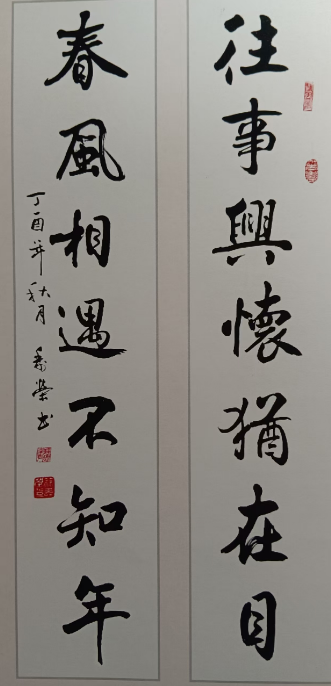 往事興懷猶在目
春風相遇不知年
丁酉年秋月
榮書